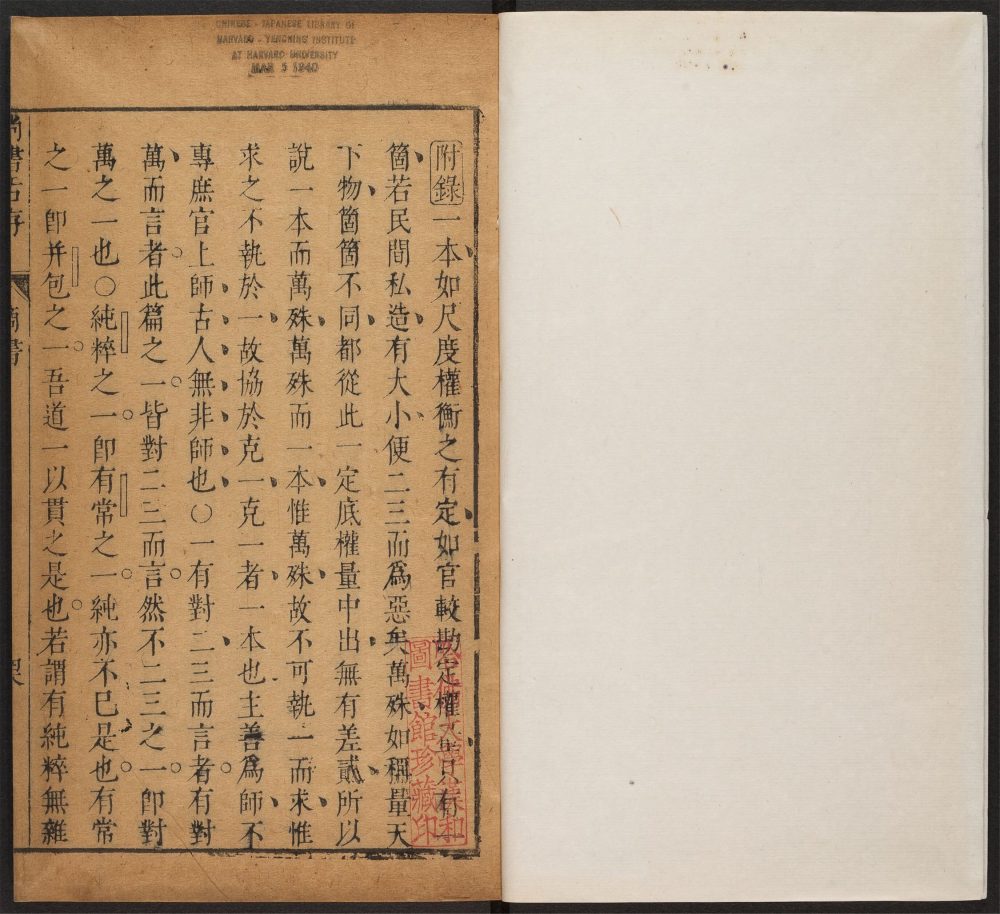 CHINESE - JAPANESE LIBRARY OF
HARVARD - YENCHING INSTITUTE
AT HARVARD UNIVERSITY
MAR 5 1940
附錄一本如尺度權衡之有定如官較勘定權只有一
箇若民間私造有大小便二三而爲惡矣萬殊如稱量天
下物箇箇不同都從此一定底權量中出無有差貳所以
說一本而萬殊萬殊而一本惟萬殊故不可執一而求惟
求之不執於一故協於克一克一者一本也主善爲師不
專庶官上師古人無非師也〇一有對二三而言者有對
萬而言者此篇之一皆對二三而言然不二三之一卽對
萬之一也〇純粹之一卽有常之一純亦不已是也有常
之一卽并包之一吾道一以貫之是也若謂有純粹無雜
尚書
哈佛大學漢和
圖書館珍藏印